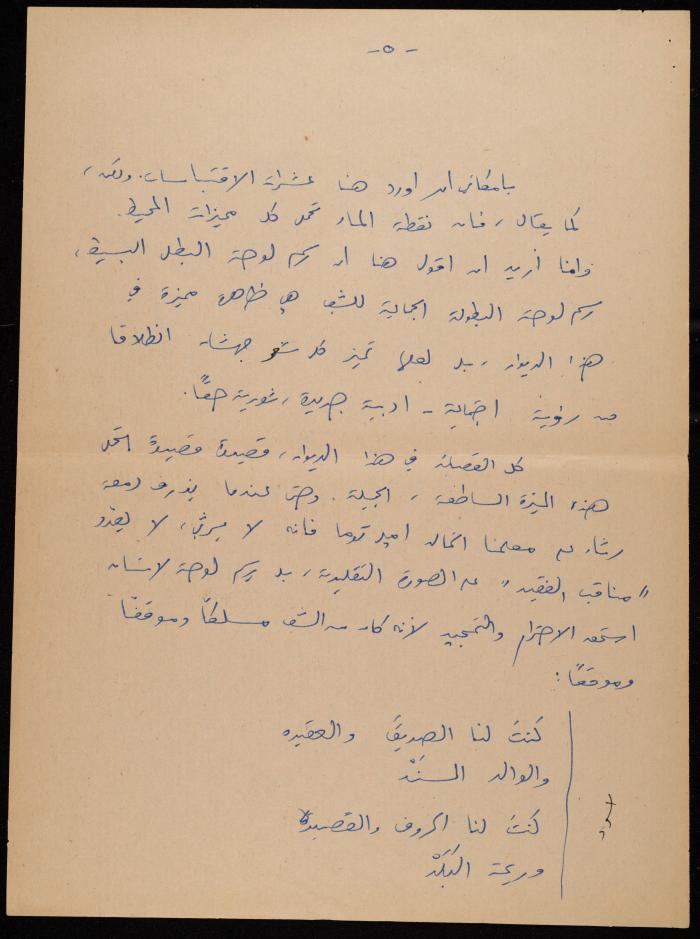 - ٥ -
بامكاني ان اورد هنا عشرات الاقتباسات. ولكن،
كما يقال، فان نقطة الماء تحمل كل مميزات المحيط.
وانا أريد ان اقول هنا ان رسم لوحة البطل البسيط،
رسم لوحة البطولة الجماعية للشعب هي ظاهرة مميزة في
هذا الديوان، بل لعلها تميز كل شعر جهشان انطلاقا
من رؤية اجتماعية - ادبية جديدة، ثورية حقًا.
كل القصائد في هذا الديوان، قصيدة قصيدة تحمل
هذه الميزة الساطعة، الجميلة. وحتى عندما يذرف دمعة
رثاء على معلمنا الخالد اميل توما فانه لا يرثي، لا يعدد
"مناقب الفقيد" على الصورة التقليدية، بل يرسم لوحة لانسان
استحق الاحترام والتمجيد لأنه كان من الشعب مسلكًا وموقفًا
وموقعًا:
كنتَ لنا الصديقَ والعقيده
والوالد السنَدْ
كنتَ لنا الحروف والقصيدة
وريحة البَلَدْ